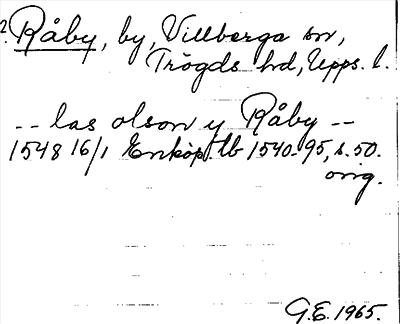 2. Råby, by, Villberga sn,
Trögds hd, Upps. l.
-- las olson y Råby --
1548 16/1 Enköp. tb 1540-95, s. 50.
orig.
G.E. 1965.